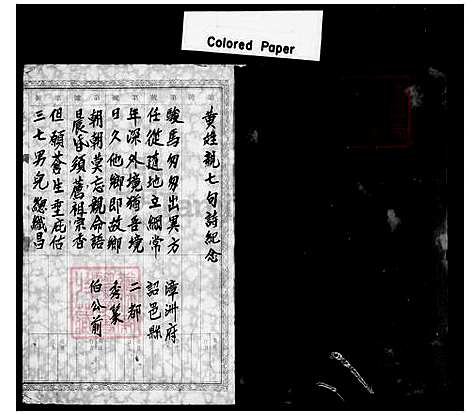 Colored Paper
黄姓親七句詩紀念
駿馬匆匆出異方
任從随地立綱常
年深外境猶吾境
日久他鄉即故鄉
朝朝莫忘親命語
晨昏須薦祖宗香
但願蒼生垂庇佑
三七男兒總熾昌
漳洲府
詔邑縣
二都
秀篆
伯公前